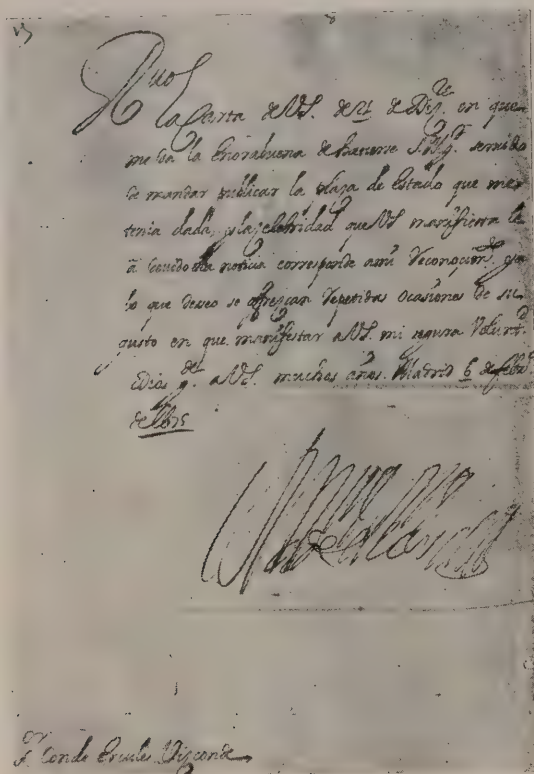 la Carta de VS. de 21 de Dizre. en que
me da la enorabuena de haverse S. Mgd. servido
de mandar publicar la plaza de Estado que me
tenia dada, y la celebridad que VS manifiesta le
á la noticia corresponde a mi Reconocimto. y a
lo que deseo se ofrezcan Repetidas ocasiones de su
gusto en que manifestar a VS. mi segura Voluntd.
Dios gde. a VS. muchos años. Madrid 6 de febro.
de
Sr. Conde Ercules Visconde